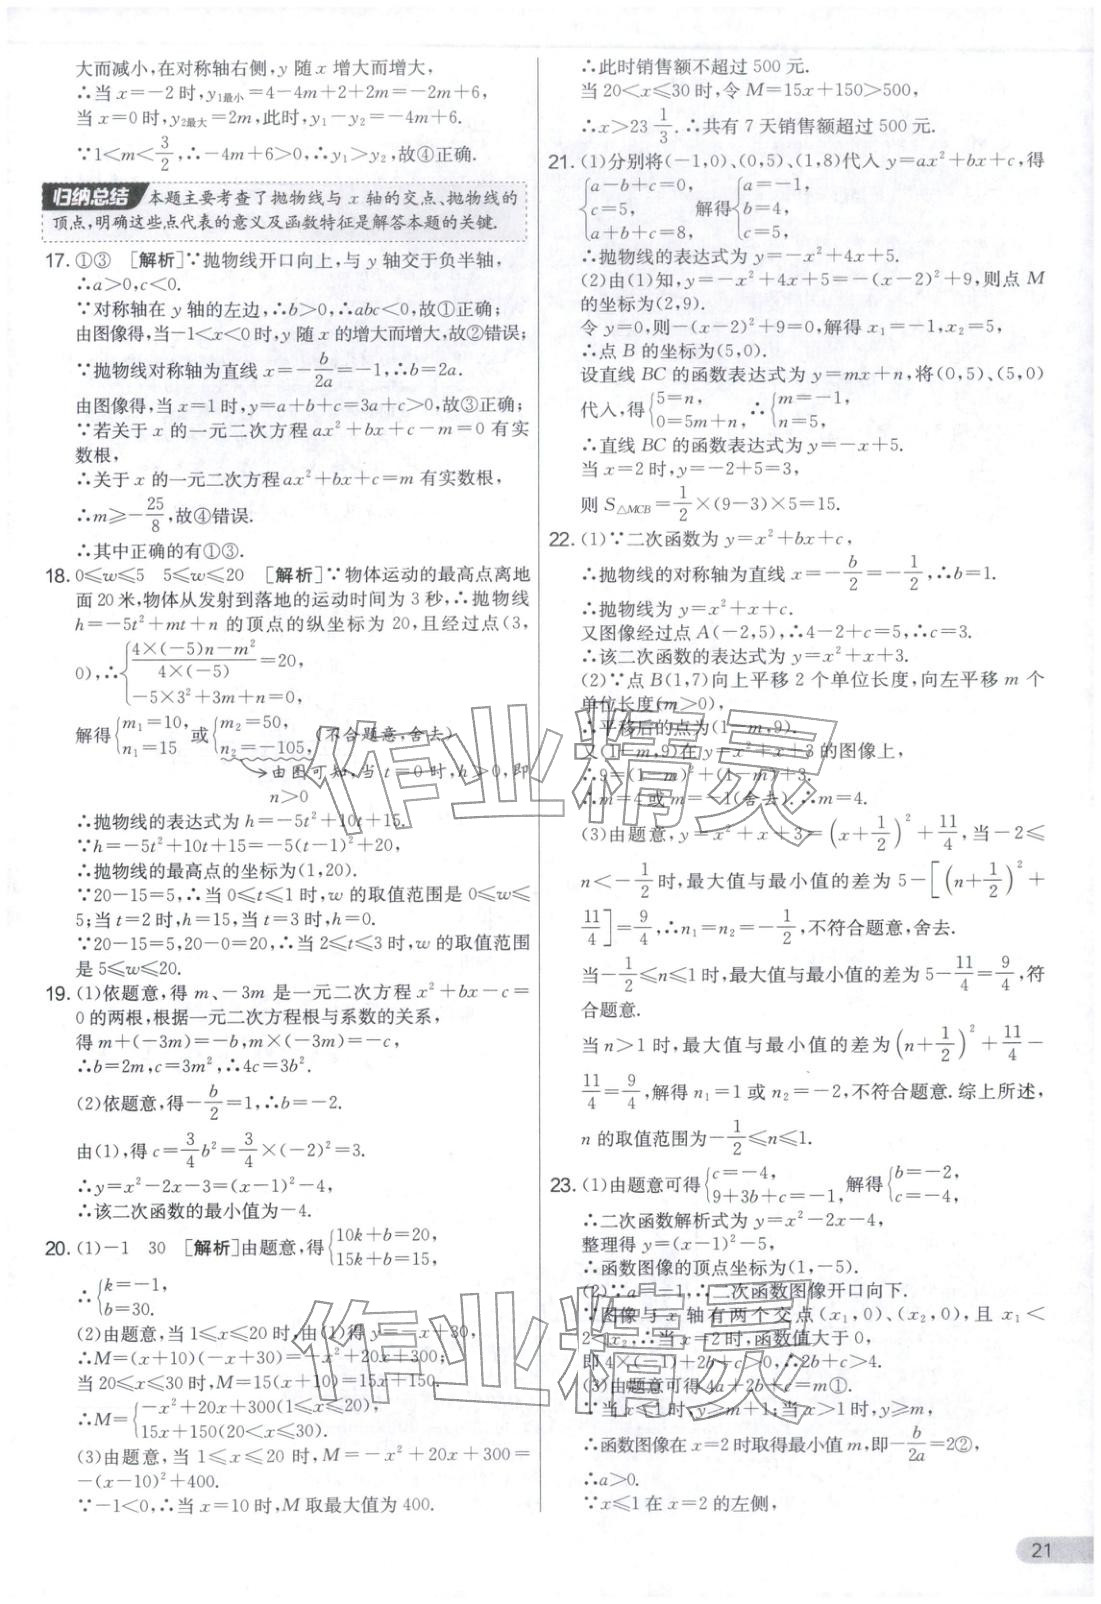 大而减小,在对称轴右侧,y 随 x 增大而增大,
∴当 x=-2 时,y₁最小=4-4m+2+2m=-2m+6,
当 x=0 时,y₂最大=2m,此时,y₁-y₂=-4m+6.
∵1<m<3/2,∴-4m+6>0,∴y₁>y₂,故④正确.
归纳总结 本题主要考查了抛物线与 x 轴的交点、抛物线的
顶点,明确这些点代表的意义及函数特征是解答本题的关键.
17. ①③ [解析]∵抛物线开口向上,与 y 轴交于负半轴,
∴a>0,c<0.
∵对称轴在 y 轴的左边,∴b>0,∴abc<0,故①正确;
由图像得,当-1<x<0时,y 随 x 的增大而增大,故②错误;
∵抛物线对称轴为直线 x=-b/2a=-1,∴b=2a.
由图像得,当 x=1 时,y=a+b+c=3a+c>0,故③正确;
∵若关于 x 的一元二次方程 ax²+bx+c-m=0 有实
数根,
∴关于 x 的一元二次方程 ax²+bx+c=m 有实数根,
∴m≥-25/8,故④错误.
∴其中正确的有①③.
18. 0≤w≤5 5≤w≤20 [解析]∵物体运动的最高点离地
面 20 米,物体从发射到落地的运动时间为 3 秒,∴抛物线
h=-5t²+mt+n 的顶点的纵坐标为 20,且经过点(3,
0),∴{(4×(-5)n-m²)/(4×(-5))=20,
-5×3²+3m+n=0,
解得{m₁=10, n₁=15 或{m₂=50, n₂=-105,(不合题意,舍去)
→由图可知,当 t=0 时,h>0,即
n>0
∴抛物线的表达式为 h=-5t²+10t+15.
∵h=-5t²+10t+15=-5(t-1)²+20,
∴抛物线的最高点的坐标为(1,20).
∵20-15=5,∴当 0≤t≤1 时,w 的取值范围是 0≤w≤
5;当 t=2 时,h=15,当 t=3 时,h=0.
∵20-15=5,20-0=20,∴当 2≤t≤3 时,w 的取值范围
是 5≤w≤20.
19. (1)依题意,得 m、-3m 是一元二次方程 x²+bx-c=
0 的两根,根据一元二次方程根与系数的关系,
得 m+(-3m)=-b,m×(-3m)=-c,
∴b=2m,c=3m²,∴4c=3b².
(2)依题意,得-b/2=1,∴b=-2.
由(1),得 c=3/4b²=3/4×(-2)²=3.
∴y=x²-2x-3=(x-1)²-4,
∴该二次函数的最小值为-4.
20. (1)-1 30 [解析]由题意,得{10k+b=20, 15k+b=15,
∴{k=-1, b=30.
(2)由题意,当 1≤x≤20 时,由(1)得 y=-x+30,
∴M=(x+10)(-x+30)=-x²+20x+300;
当 20≤x≤30 时,M=15(x+10)=15x+150.
∴M={-x²+20x+300(1≤x≤20), 15x+150(20<x≤30).
(3)由题意,当 1≤x≤20 时,M=-x²+20x+300=
-(x-10)²+400.
∵-1<0,∴当 x=10 时,M 取最大值为 400.
∴此时销售额不超过 500 元.
当 20<x≤30 时,令 M=15x+150>500,
∴x>23 1/3.∴共有 7 天销售额超过 500 元.
21. (1)分别将(-1,0)、(0,5)、(1,8)代入 y=ax²+bx+c,得
{a-b+c=0, c=5, a+b+c=8, 解得{a=-1, b=4, c=5,
∴抛物线的表达式为 y=-x²+4x+5.
(2)由(1)知,y=-x²+4x+5=-(x-2)²+9,则点 M
的坐标为(2,9).
令 y=0,则-(x-2)²+9=0,解得 x₁=-1,x₂=5,
∴点 B 的坐标为(5,0).
设直线 BC 的函数表达式为 y=mx+n,将(0,5)、(5,0)
代入,得{5=n, 0=5m+n, ∴{m=-1, n=5,
∴直线 BC 的函数表达式为 y=-x+5.
当 x=2 时,y=-2+5=3,
则 S△MCB=1/2×(9-3)×5=15.
22. (1)∵二次函数为 y=x²+bx+c,
∴抛物线的对称轴为直线 x=-b/2=-1/2,∴b=1.
∴抛物线为 y=x²+x+c.
又图像经过点 A(-2,5),∴4-2+c=5,∴c=3.
∴该二次函数的表达式为 y=x²+x+3.
(2)∵点 B(1,7)向上平移 2 个单位长度,向左平移 m 个
单位长度(m>0),
∴平移后的点为(1-m,9).
又(1-m,9)在 y=x²+x+3 的图像上,
∴9=(1-m)²+(1-m)+3.
∴m=4 或 m=-1(舍去).∴m=4.
(3)由题意,y=x²+x+3=(x+1/2)²+11/4,当-2≤
n<-1/2时,最大值与最小值的差为 5-[(n+1/2)²+
11/4]=9/4,∴n₁=n₂=-1/2,不符合题意,舍去.
当-1/2≤n≤1 时,最大值与最小值的差为 5-11/4=9/4,符
合题意.
当 n>1 时,最大值与最小值的差为(n+1/2)²+11/4-
11/4=9/4,解得 n₁=1 或 n₂=-2,不符合题意.综上所述,
n 的取值范围为-1/2≤n≤1.
23. (1)由题意可得{c=-4, 9+3b+c=-1, 解得{b=-2, c=-4,
∴二次函数解析式为 y=x²-2x-4,
整理得 y=(x-1)²-5,
∴函数图像的顶点坐标为(1,-5).
(2)∵a=-1,∴二次函数图像开口向下.
∵图像与 x 轴有两个交点(x₁,0)、(x₂,0),且 x₁<
2<x₂,∴当 x=2 时,函数值大于 0,
即 4×(-1)+2b+c>0,∴2b+c>4.
(3)由题意可得 4a+2b+c=m①.
∵当 x≤1 时,y≥m+1;当 x>1 时,y≥m,
∴函数图像在 x=2 时取得最小值 m,即-b/2a=2②,
∴a>0.
∵x≤1 在 x=2 的左侧,
21
作业精灵
作业精灵